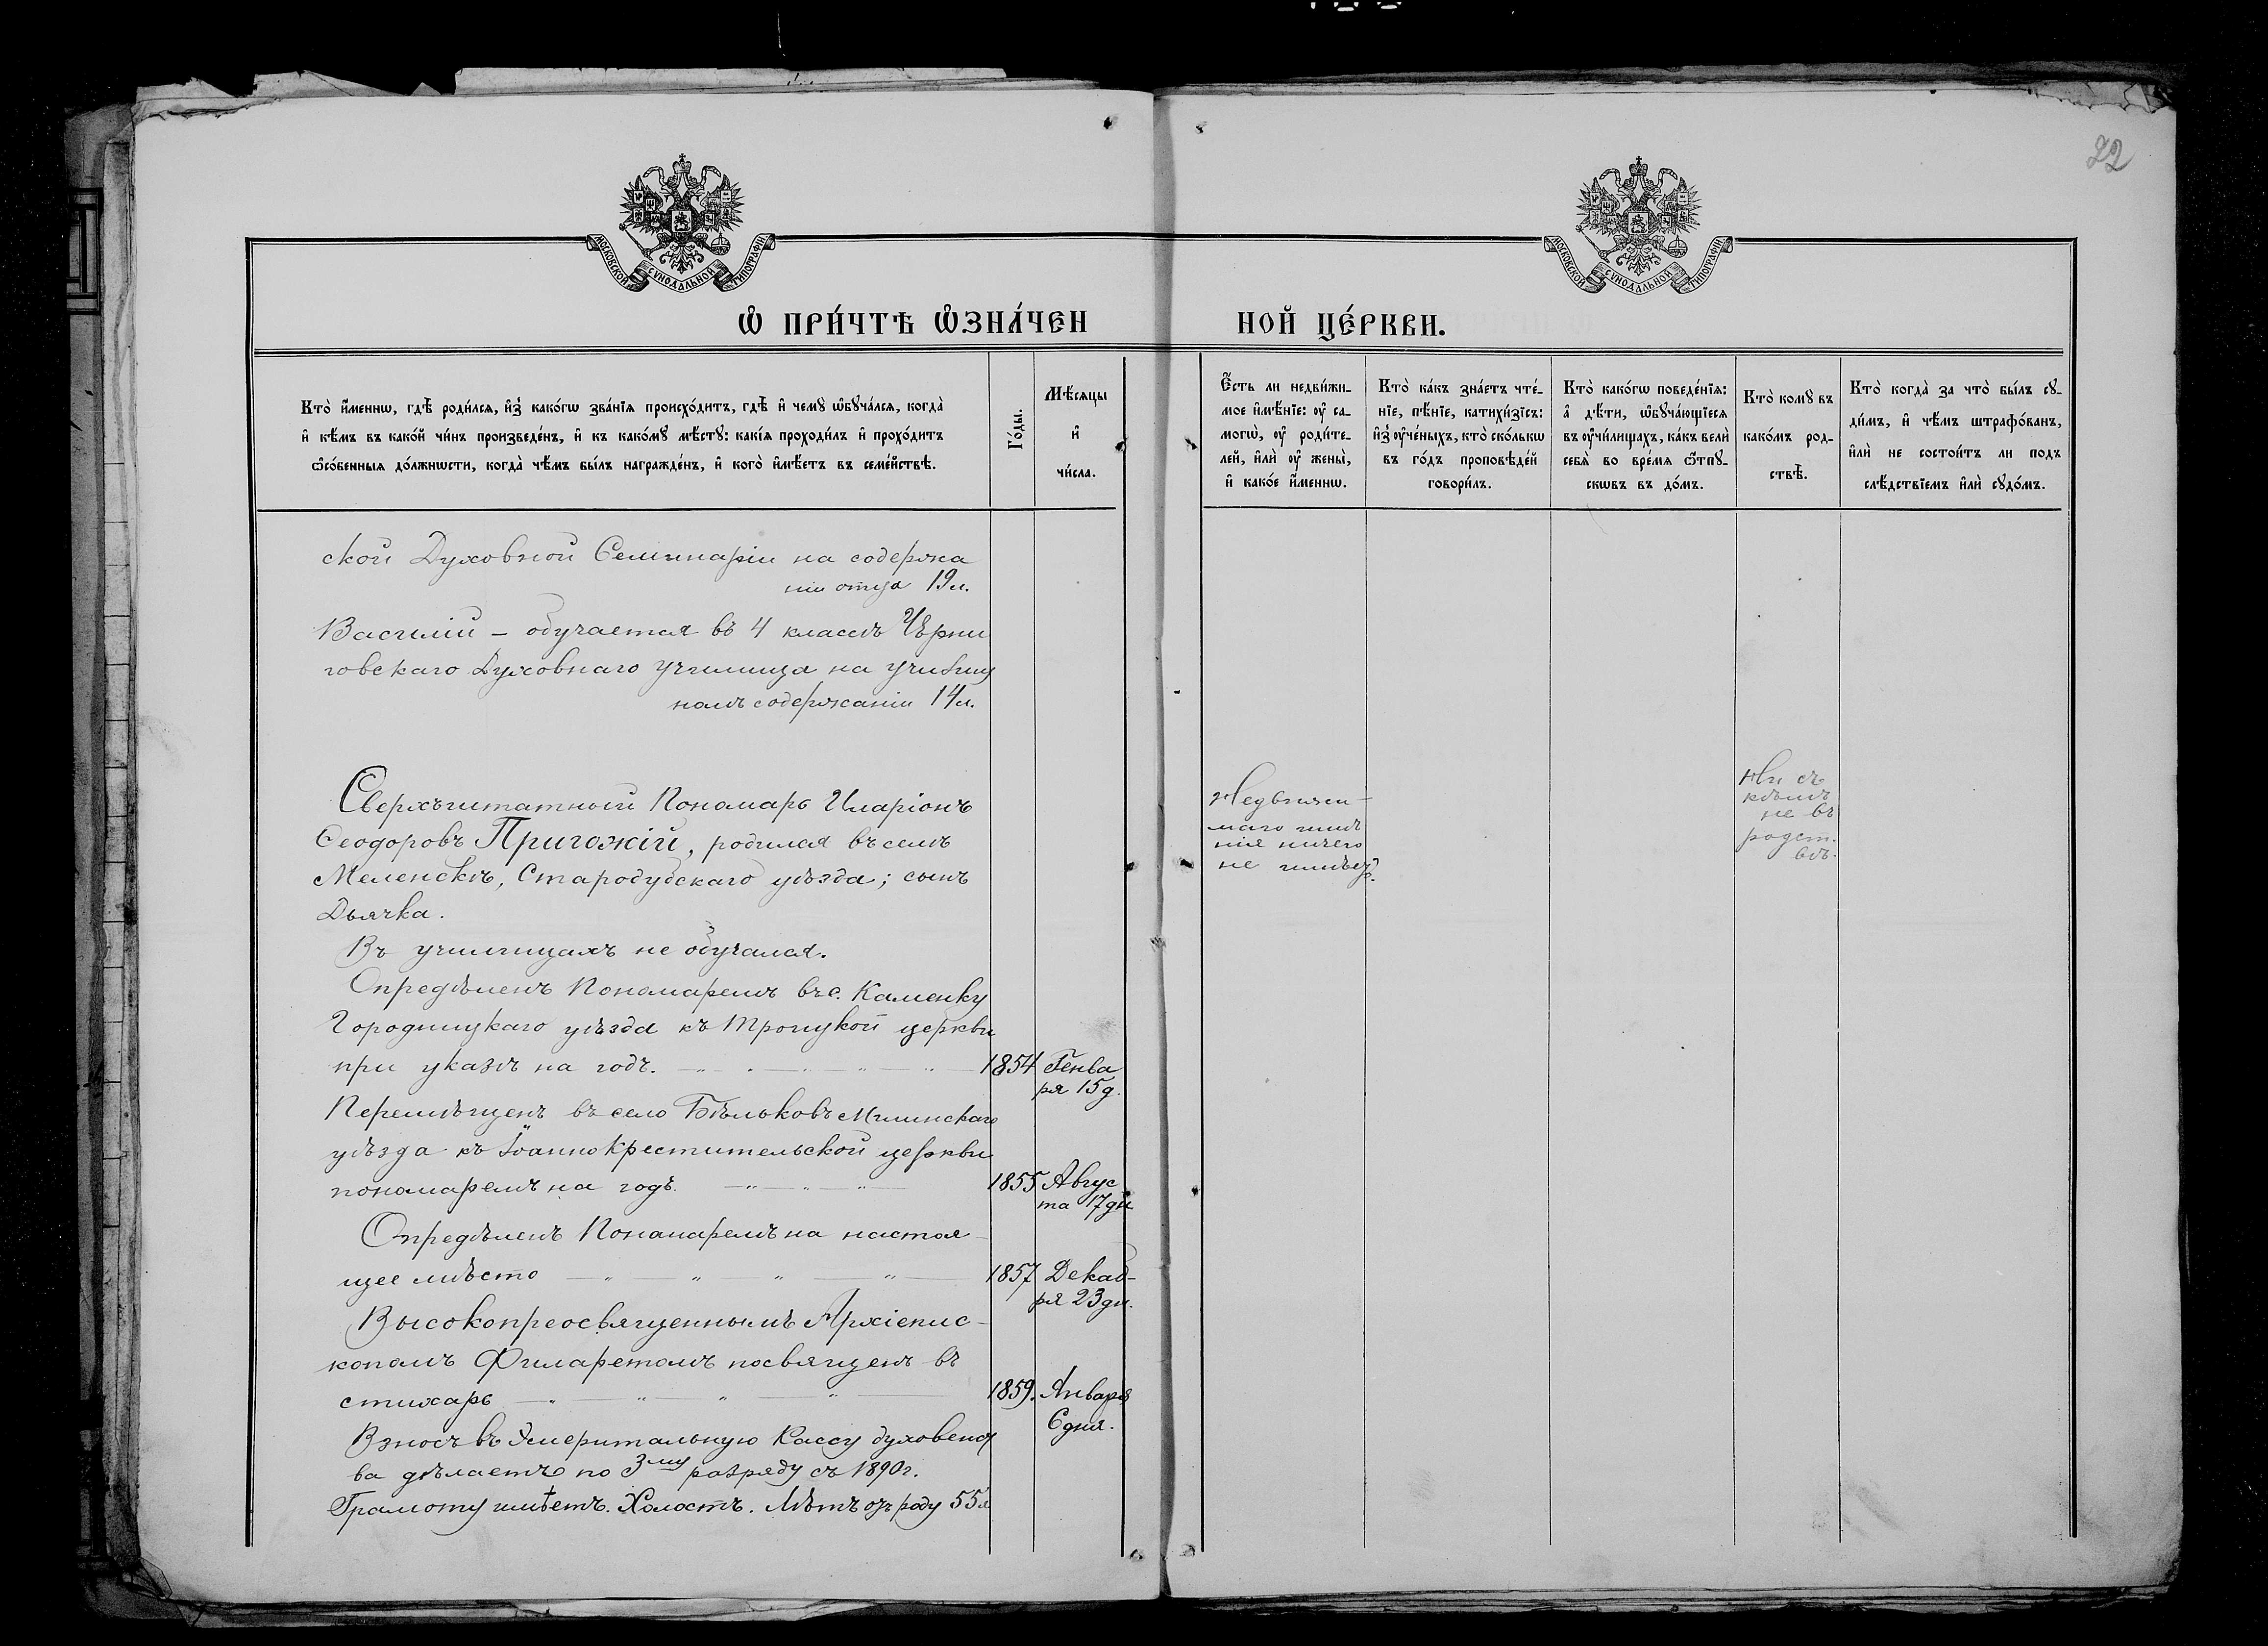 22
МОСКОВСКОЙ СѴНОДАЛЬНОЙ ТИПОГРАФІИ
МОСКОВСКОЙ СѴНОДАЛЬНОЙ ТИПОГРАФІИ
Ѽ ПРИ́ЧТѢ Ѽ҆ЗНА́ЧЕН
НОЙ ЦЕ́РКВИ.
Кто̀ и҆́меннѡ, гдѣ̀ роди́лсѧ, и҆з̾ како́гѡ зва́нїѧ происхо́дитъ, гдѣ̀ и҆ чемꙋ̀ ѡ҆бꙋча́лсѧ, когда̀
и҆ кѣ́мъ въ како́й чи́нъ произведе́нъ, и҆ къ како́мꙋ мѣ́стꙋ: какі́ѧ проходи́лъ и҆ прохо́дитъ
ѻ҆со́бенныѧ до́лжнѡсти, когда̀ чѣ́мъ бы́лъ награжде́нъ, и҆ кого̀ и҆мѣ́етъ въ семе́йствѣ.
Го́ды.
Мѣ́сѧцы
и҆
чи́сла.
Є҆́сть ли недви́жи-
мое и҆мѣ́нїе: ᲂу҆ са-
могѡ̀, ᲂу҆ роди́те-
лей, и҆лѝ ᲂу҆ жены̀,
и҆ како́е и҆́меннѡ.
Кто̀ ка́къ зна́етъ чте́-
нїе, пѣ́нїе, катихи́зїсъ:
и҆з̾ ᲂу҆че́ныхъ, кто̀ ско́лькѡ
въ го́дъ проповѣ́дей
говори́лъ.
Кто̀ како́гѡ поведе́нїѧ:
а҆ дѣ́ти, ѡ҆бꙋча́ющїесѧ
въ ᲂу҆чи́лищахъ, ка́къ велѝ
себѐ во вре́мѧ ѿпꙋ-
скѡвъ въ до́мъ.
Кто̀ комꙋ̀ въ
како́мъ род-
ствѣ̀.
Кто̀ когда̀ за что̀ бы́лъ сꙋ-
ди́мъ, и҆ чѣ́мъ штрафо́ванъ,
и҆лѝ не состои́тъ ли подъ
слѣ́дствїемъ и҆лѝ сꙋдо́мъ.
ской Духовной Семинаріи на содержа
ніи отца 19л.
Василій – обучается въ 4 классѣ Черни
говскаго Духовнаго училища на училищ
номъ содержаніи 14л.
Сверхъштатный Пономарь Иларіонъ
Ѳеодоровъ Пригожій, родился въ селѣ
Меленскѣ, Стародубскаго уѣзда; сынъ
Дьячка.
Въ училищахъ не обучался.
Опредѣленъ Пономаремъ въ с. Каменку
Городницкаго уѣзда къ Троицкой церкви
при указѣ на годъ. 1854 Генва
ря 15 д.
Перемѣщенъ въ село Бѣльковъ Мглинскаго
уѣзда къ Іоанно Крестительской церкви
пономаремъ на годъ. 1855 Авгус
та 17 дн
Опредѣленъ Пономаремъ на настоя-
щее мѣсто 1857 Декаб-
ря 23 дн.
Высокопреосвященнымъ Архіепис-
копомъ Филаретомъ посвященъ въ
стихарь 1859. Января
6 дня.
Взносъ въ Эмеритальную Кассу духовенст
ва дѣлаетъ по 3му разряду съ 1890 г.
Грамоту имѣетъ. Холостъ. Лѣтъ отъ роду 55 л
Недвижи-
маго имѣ
нія ничего
не имѣетъ.
Ни съ
кѣмъ
не въ
родст-
вѣ.